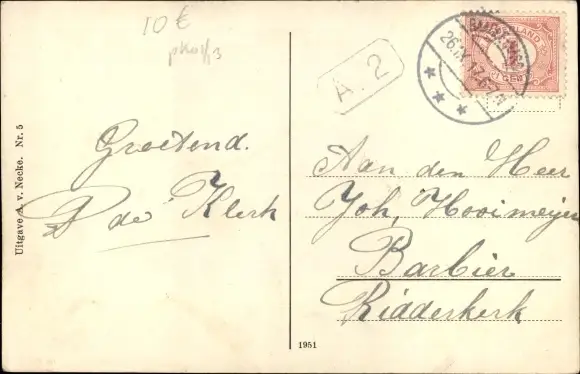 10 €
A. 2
26.IX 17.6-7 N
Groetend.
P de Klerk
Aan den Heer
Joh, Hooimeijer
Barbier
Ridderkerk
Uitgave A. v. Necke. Nr. 5
1951